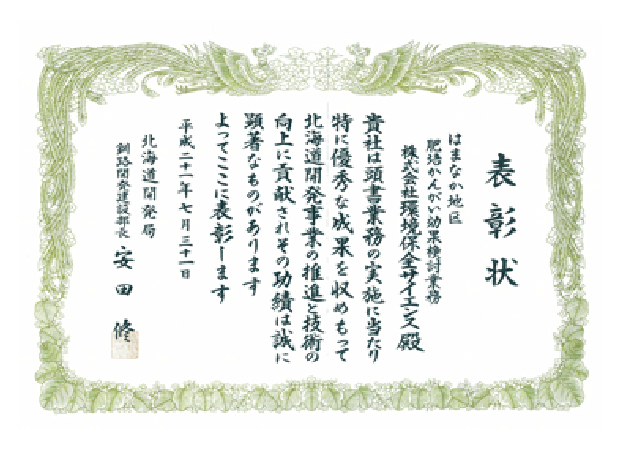 表彰状
はまなか地区
肥培かんがい効果検討業務
株式会社環境保全サイエンス殿
貴社は頭書業務の実施に当たり
特に優秀な成果を収めもって
北海道開発事業の推進と技術の
向上に貢献されその功績は誠に
顕著なものがあります
よってここに表彰します
平成二十一年七月三十一日
北海道開発局
釧路開発建設部長 安田修